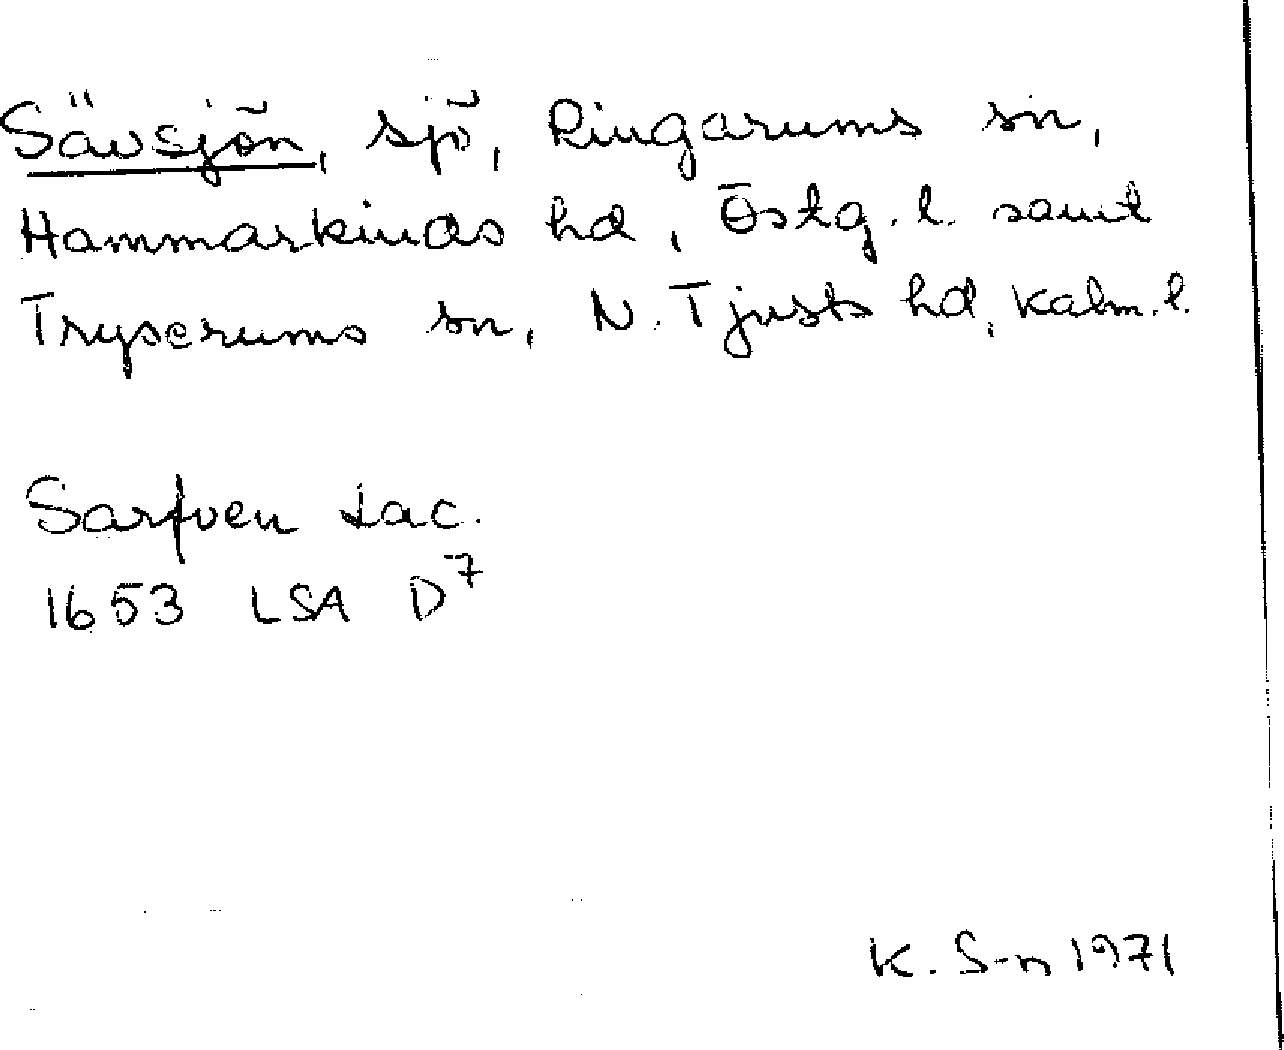 Sävsjön, sjö, Ringarums sn,
Hammarkinds hd, Östg. l. samt
Tryserums sn, N. Tjusts hd, Kalm. l.
Sarfven Lac.
1653 LSA D7
K. S-n 1971